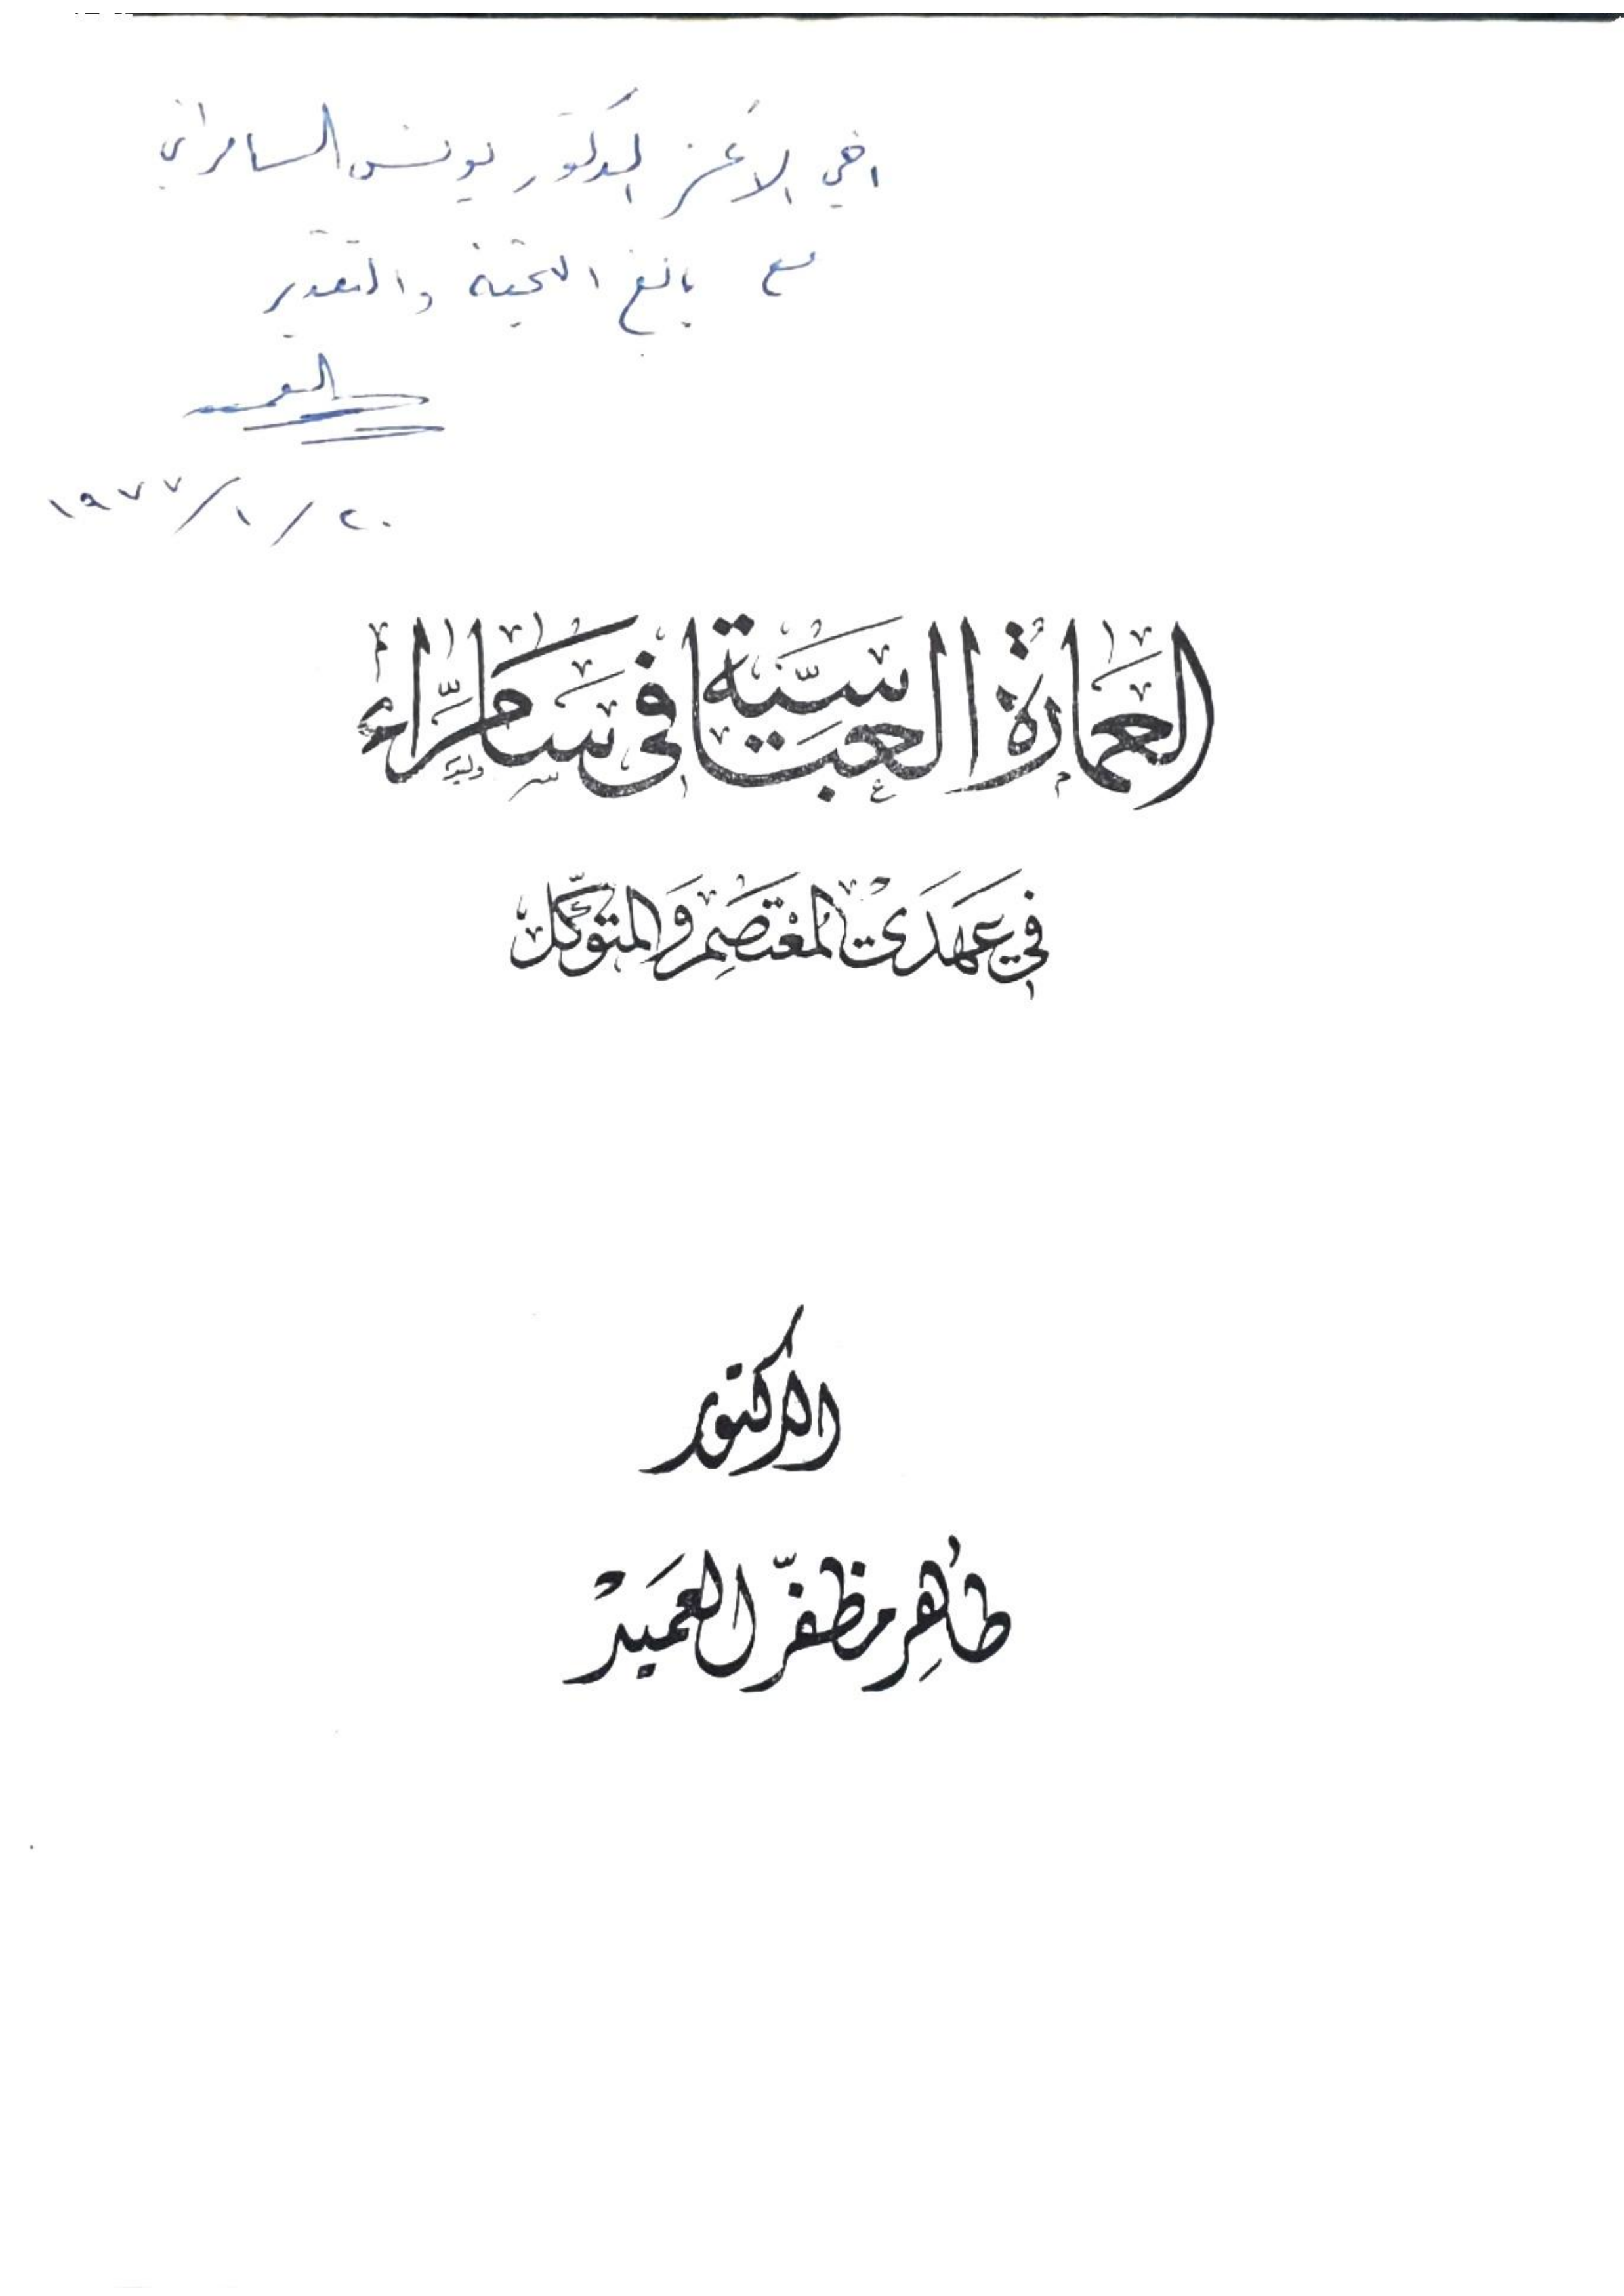 اخي الاعز الدكتور يونس السامرائي
مع بالغ التحية والتقدير
٢٠/١/١٩٧٧
العمارة العباسية في سامراء
في عهدي المعتصم والمتوكل
الدكتور
طاهر مظفر العميد